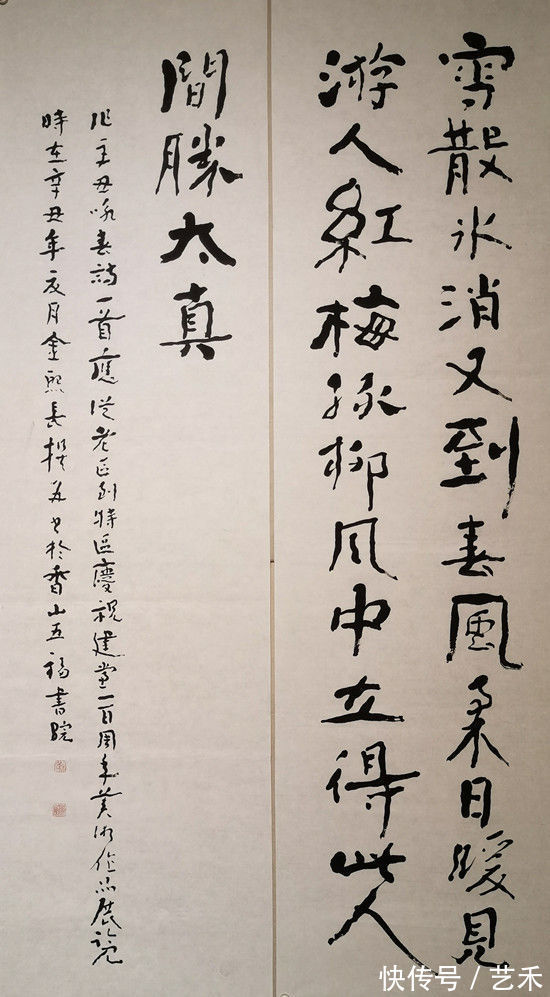 雪散氷消又到春風柔日暖見
游人紅梅綠柳风中立得此人
間勝太真
作辛丑咏春詩一首應從老區到特區慶祝建黨一百周年美術作品展览
時在辛丑年夏月金熙長撰并書於香山五福書院
快传号 / 艺禾